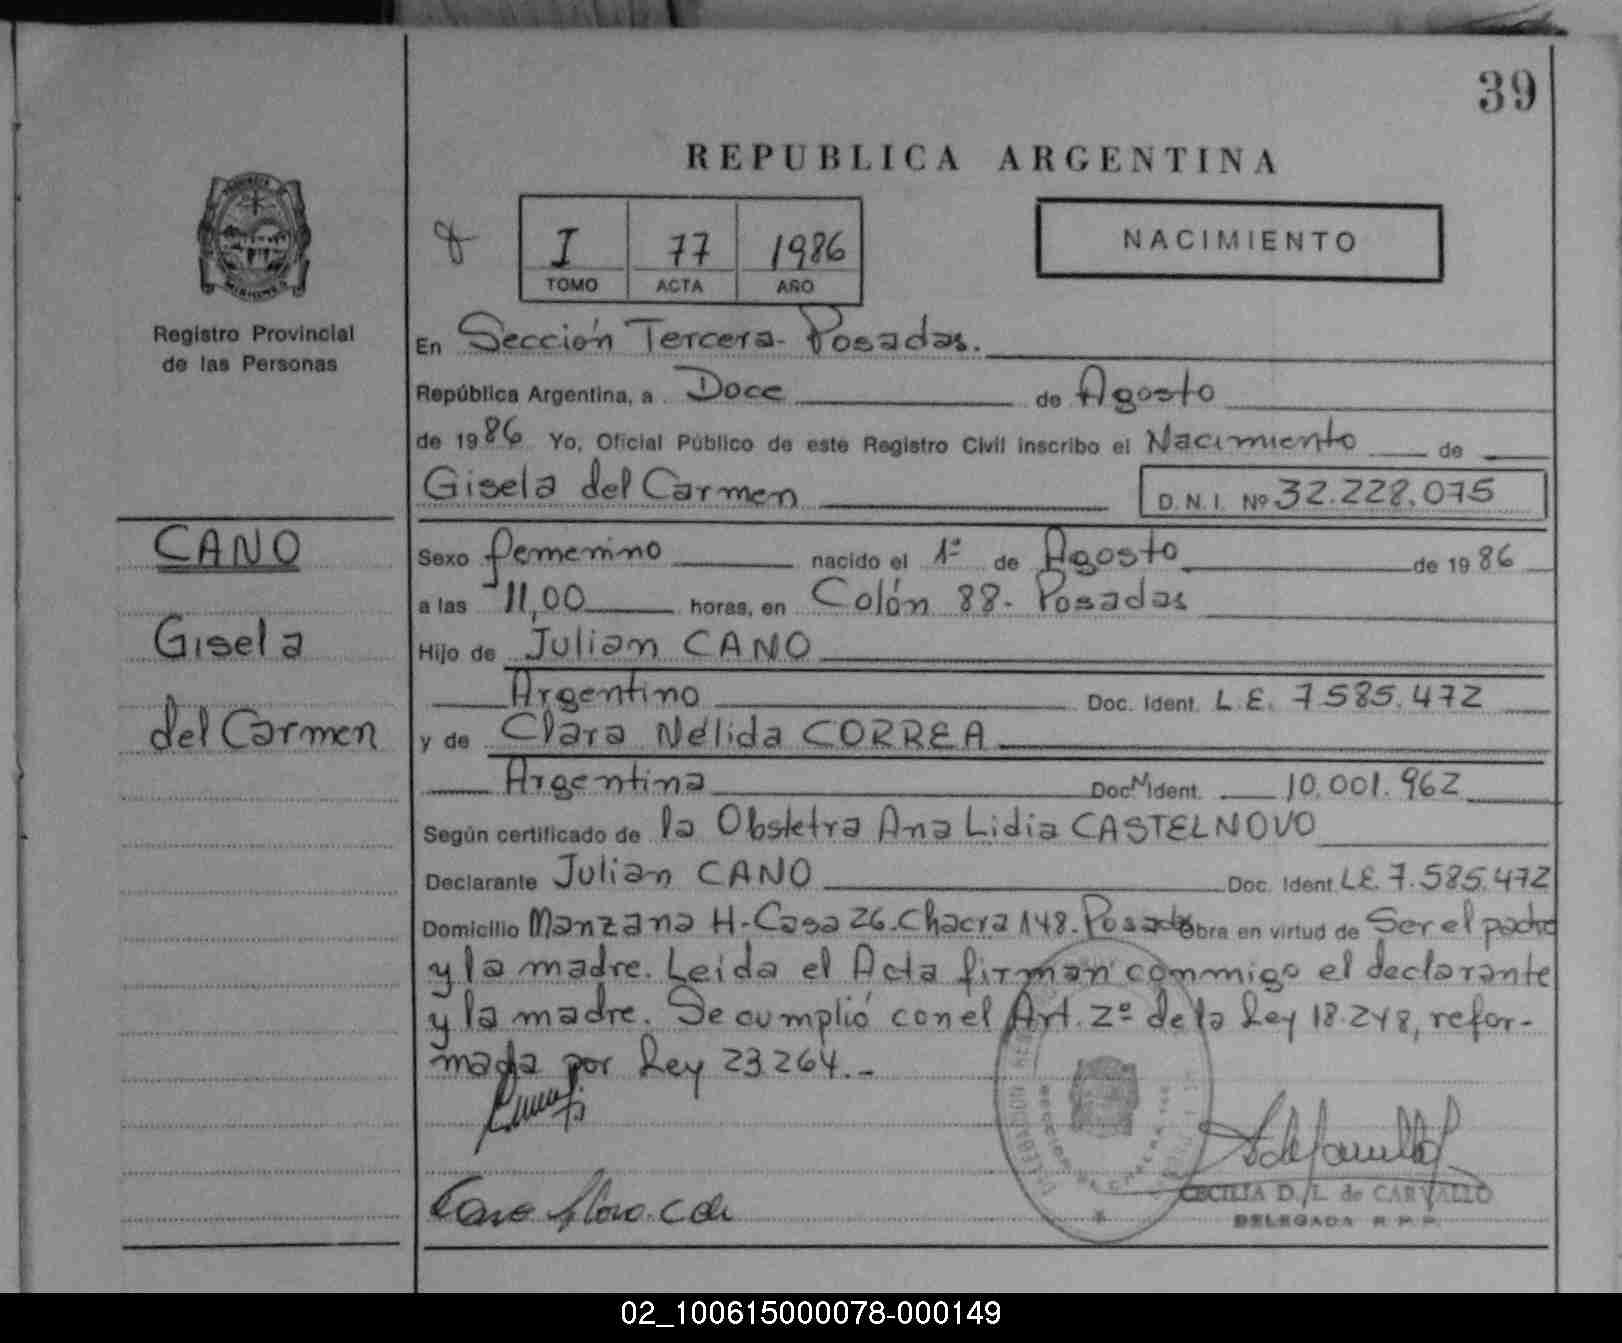 39
REPUBLICA ARGENTINA
PROVINCIA DE
MISIONES
Registro Provincial
de las Personas
I 77 1986
TOMO ACTA AÑO
NACIMIENTO
En Sección Tercera- Posadas.
República Argentina, a Doce de Agosto
de 1986 Yo, Oficial Público de este Registro Civil inscribo el Nacimiento de
Gisela del Carmen D.N.I. Nº 32.228.075
CANO
Gisela
del Carmen
Sexo femenino nacido el 1º de Agosto de 1986
a las 11,00 horas, en Colón 88- Posadas
Hijo de Julian CANO
Argentino Doc. Ident. L.E. 7.585.472
y de Clara Nélida CORREA
Argentina Doc. Ident. 10.001.962
Según certificado de la Obstetra Ana Lidia CASTELNOVO
Declarante Julian CANO Doc. Ident. L.E. 7.585.472
Domicilio Manzana H-Casa 26-Chacra 148-Posadas Obra en virtud de Ser el padre
y la madre. Leída el Acta firman conmmigo el declarante
y la madre. Se cumplió con el Art. 2º de la Ley 18.248, refor-
mada por Ley 23.264.-
CECILIA D. L. de CARVALLO
DELEGADA R.P.P.
02_100615000078-000149